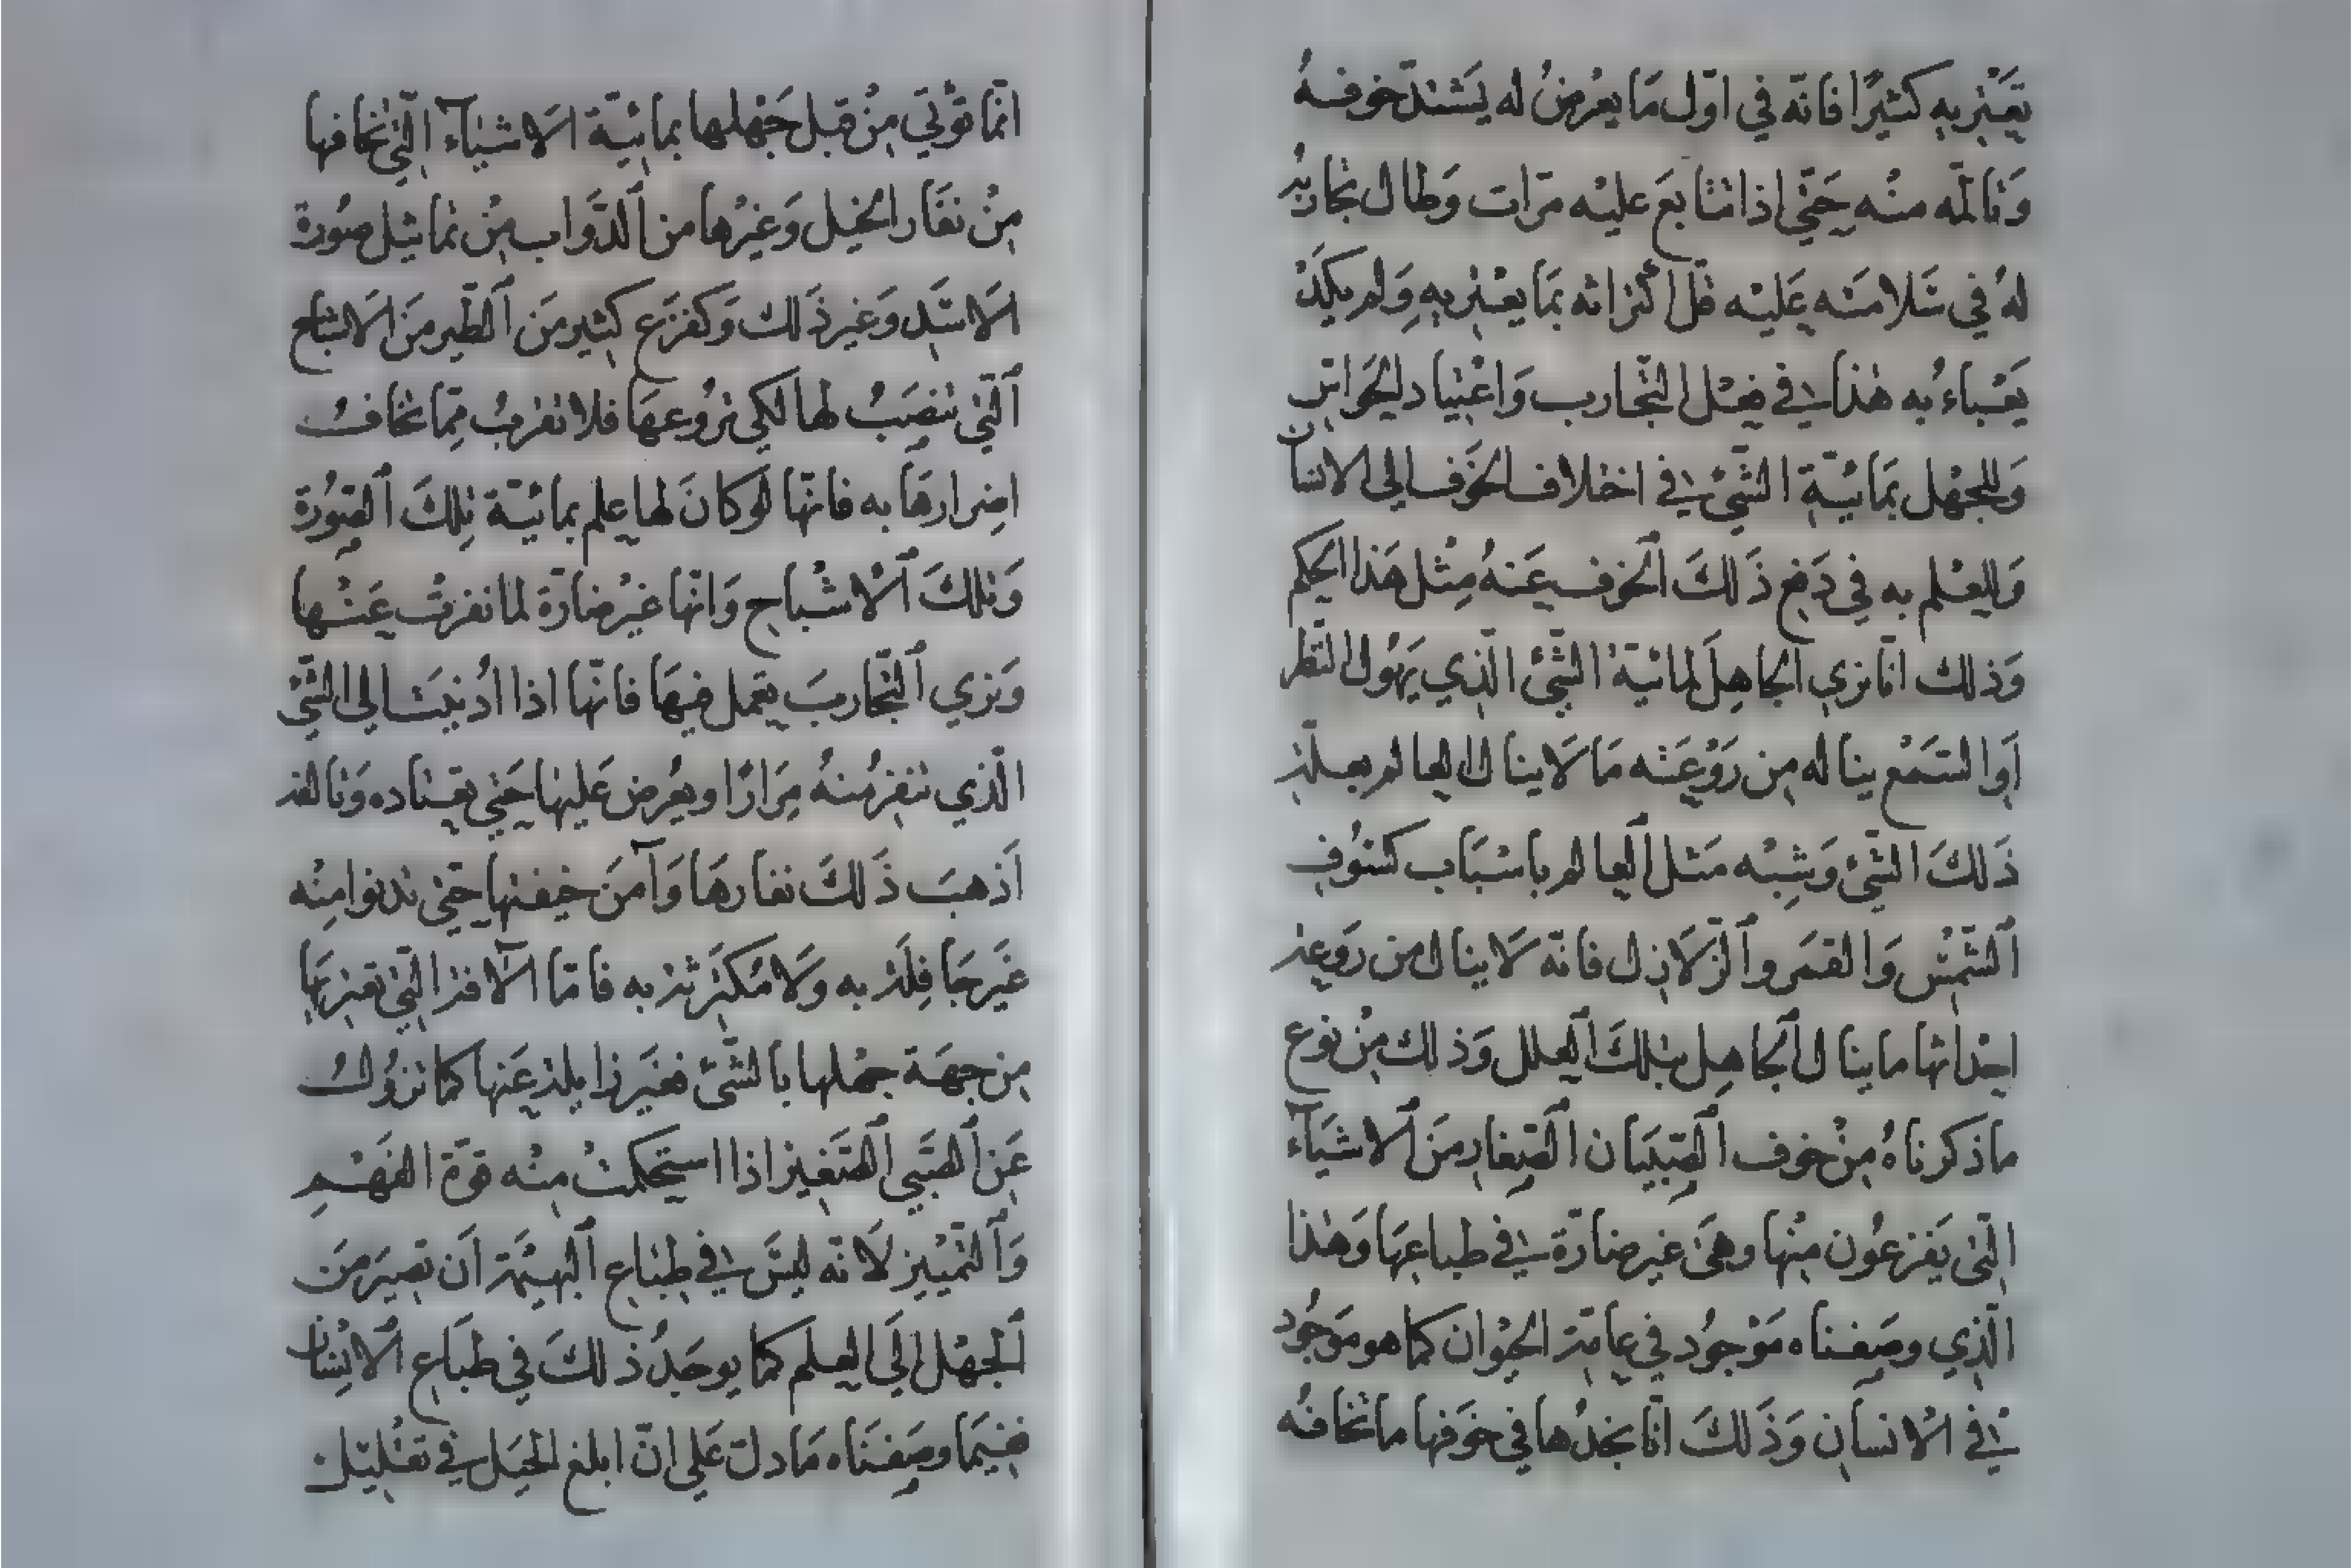 يَعْتَبِر به كثيرًا فانّه في اوّل مَا يعْرضُ له يَشتدّ خوفهُ
وَتالمّه منْه حَتّي اذا تتابعَ عليْه مرّات وَطال تجاربُه
لهُ في سَلامتْه عَليْه قلّ اكتراثه بمَا يعْتبر به وَلم يكَدْ
يَعْباءُ به هٰذا في فعْل التّجارب وَاعْتياد الحَواس
وَللجهْل بمَائيّة الشّيْ في اختلاف الخَوف الي الانسان
وَللعْلم به في دَفع ذَلكَ الخوف عَنهُ مثْل هَذا الحكم
وَذلك انّا نري الجاهِلَ لمائيّة الشّئ الّذي يَهُول النّظر
اَوا السّمْع ينا له من رَوْعَته مَا لَا ينال العالم بعلّة
ذَلكَ الشّئ وَشبْه مَثل العالم باسْبَاب كسُوف
الشّمْس وَالقمَر والزّلازل فانّه لَا ينال من رَوعة
احداثها ما ينال الجاهل بتلكَ العلل وَذلك منْ نوع
ما ذكرناهُ منْ خوف الصّبيَان الصّغار منَ الاشيَآء
الّتي يَفزعُون منْها وهيَ غير ضارّة في طباعهَا وَهٰذا
الّذي وصفناه مَوْجُود في عامّة الحيْوان كما هو موَجُود
في الانسان وَذَلكَ انّا نجدُها في خَوَفها ما تخافهُ
انّما تؤتي منْ قبل جَهْلها بمائيّة الَاشيٰآء الّتي تخافها
منْ نفَار الخيل وَغيْرها من الدّوَاب من تماثيل صُورة
الَاسَد وَغير ذَلك وَكفزَع كثير منَ الطّير منَ الَاشباح
الّتي تنصَبُ لها لكي تروُعهَا فلا تقربُ ممّا تخافُ
اضرارهَا به فانّها لَو كانَ لها علم بمائيّة تلكَ الصّورُة
وَتلكَ الاشْباح وَانّها غيْر ضارّة لما نفرتْ عَنْها
وَنري التّجاربَ يعَمل فيهَا فانّها اذا ادُنيَت الي الشّئ
الّذي تنفرُ منْهُ مرَارًا ويعُرض عَليها حَتي تعتاده وَتالفه
اَذهبَ ذَلكَ نفارهَا وَآمنَ خيفتها حتّي تدنوا منْه
غَيرَ جَافلة به وَلَا مُكتَرثة به فامّا الآفة الّتي تعترِيهَا
من جهَة جهْلها بالشّئ فغيَر زايلة عَنها كما تزوُل
عَن الصّبَي الصّغير اذا استَحكمتْ منْه قوّة الفَهْم
وَالتّمْييز لَانّه ليْسَ في طبَاع البهيْمَة اَن تصيرَ منَ
الجهْل الَي العلم كما يوجَدُ ذَلكَ في طبَاع الانْسَان
ففيمَا وصفنَاه مَا دلّ عَلي انّ ابلغ الحيَل في تقليْل